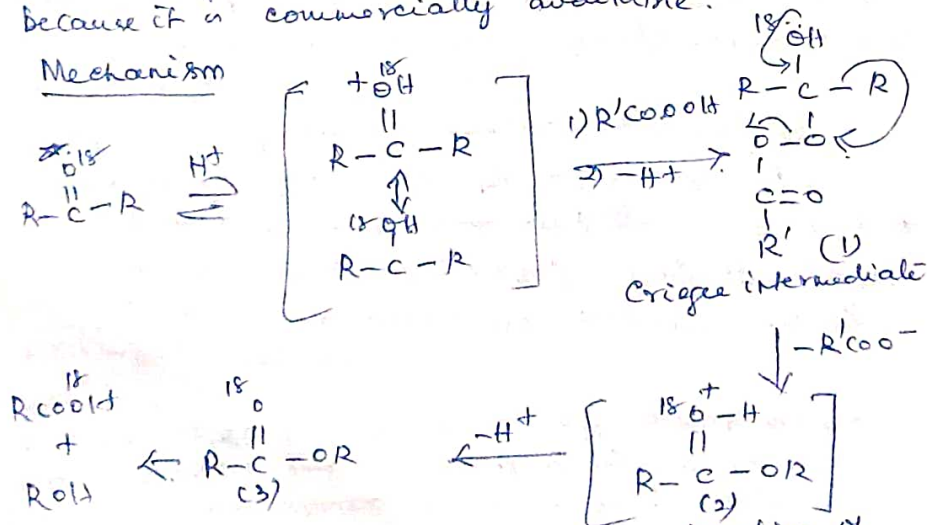 because it is commercially available.
Mechanism
O18
||
R-C-R
H+
+ 18
OH
||
R-C-R
18 OH
R-C-R
1) R'COOOH
2) -H+
18 ÖH
R-C-R
O-O
C=O
R' (1)
Criegee intermediate
-R'COO-
18 O+-H
||
R-C-OR
(2)
-H+
18
O
||
R-C-OR
(3)
18
RCOOH
+
ROH